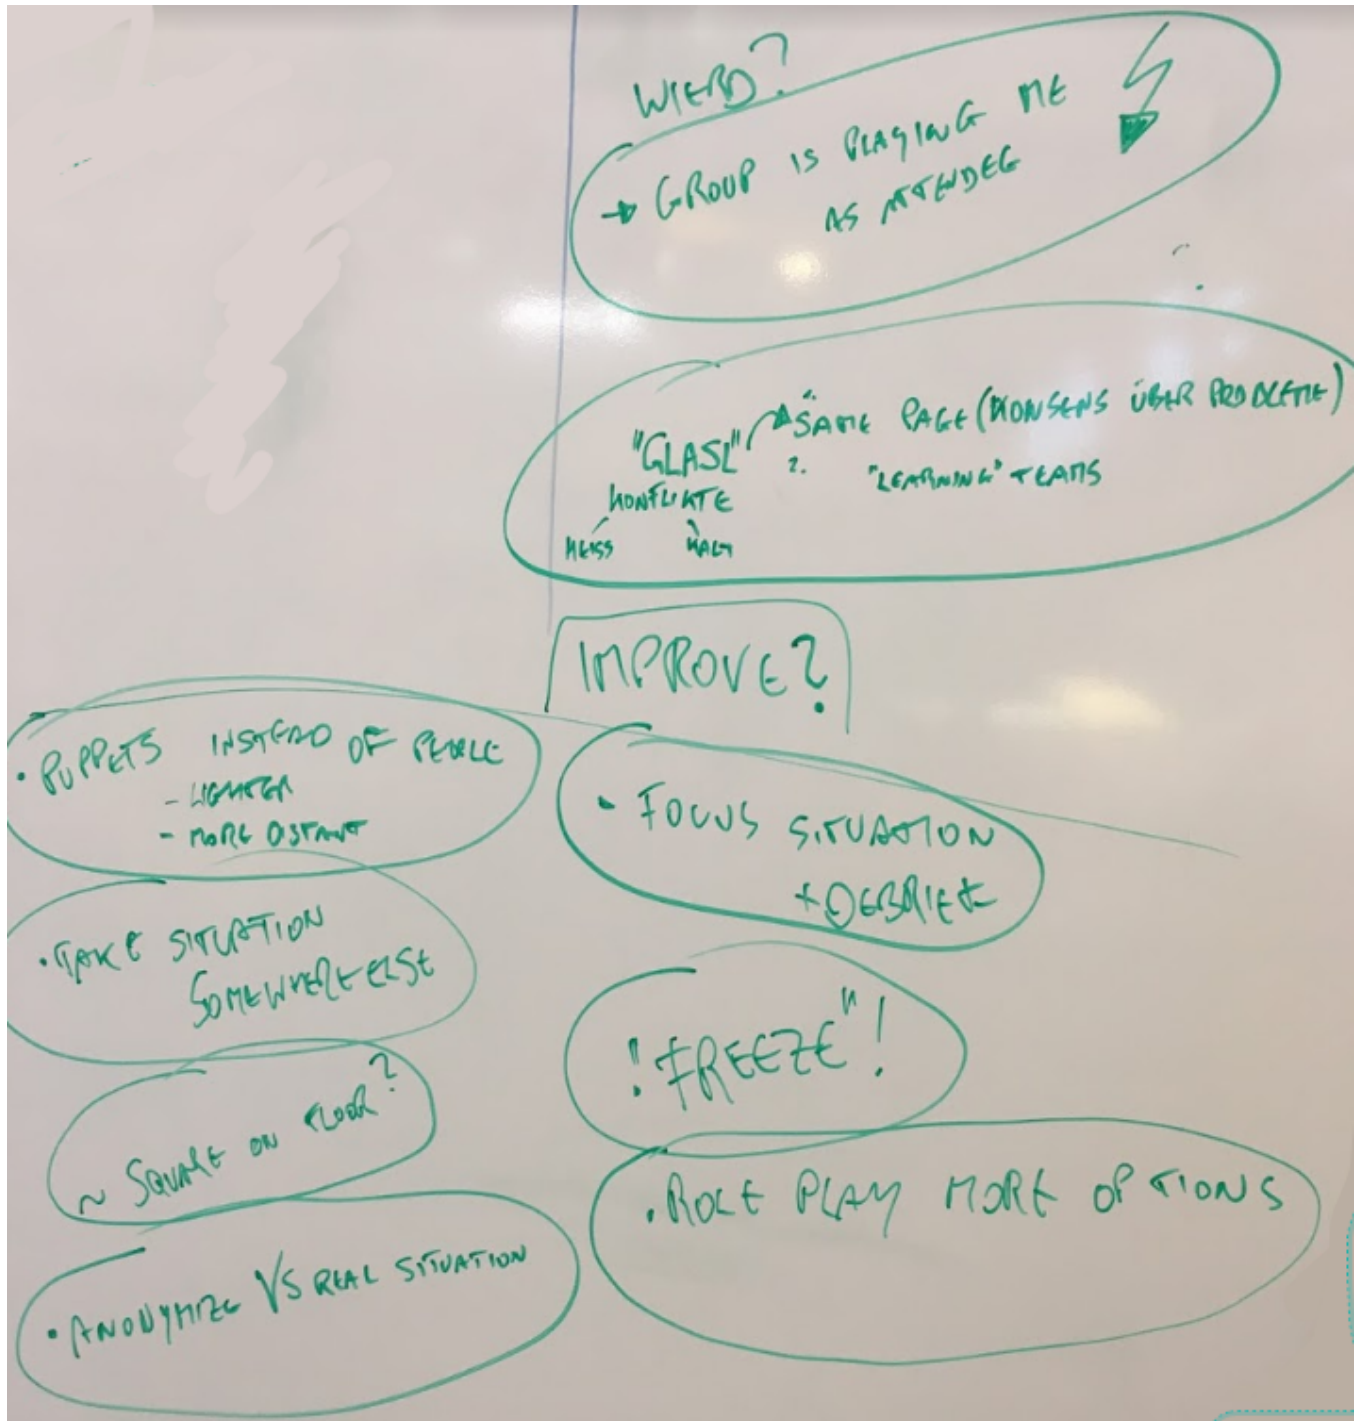 WIERD?
→ GROUP IS PLAYING ME
AS ATTENDEE
"GLASL"
1. SAME PAGE (KONSENS ÜBER PROBLEME)
2. "LEARNING" TEAMS
KONFLIKTE
HEISS KALT
IMPROVE?
• PUPPETS INSTEAD OF PEOPLE
- LIGHTER
- MORE DISTANT
• TAKE SITUATION
SOMEWHERE ELSE
~ SQUARE ON FLOOR?
• ANONYMIZE VS REAL SITUATION
- FOCUS SITUATION
+ DEBRIEF
! FREEZE" !
• ROLE PLAY MORE OPTIONS